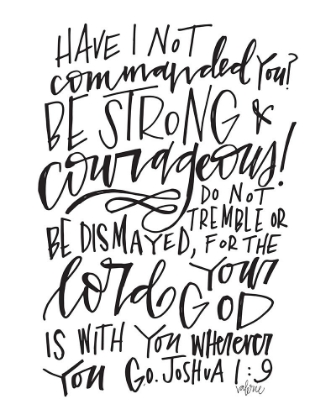 HAVE I NOT
commanded you?
BE STRONG &
courageous!
DO NOT
TREMBLE OR
BE DISMAYED, FOR THE
lord your
GOD
IS WITH you wherever
you GO. JOSHUA 1:9
valerie